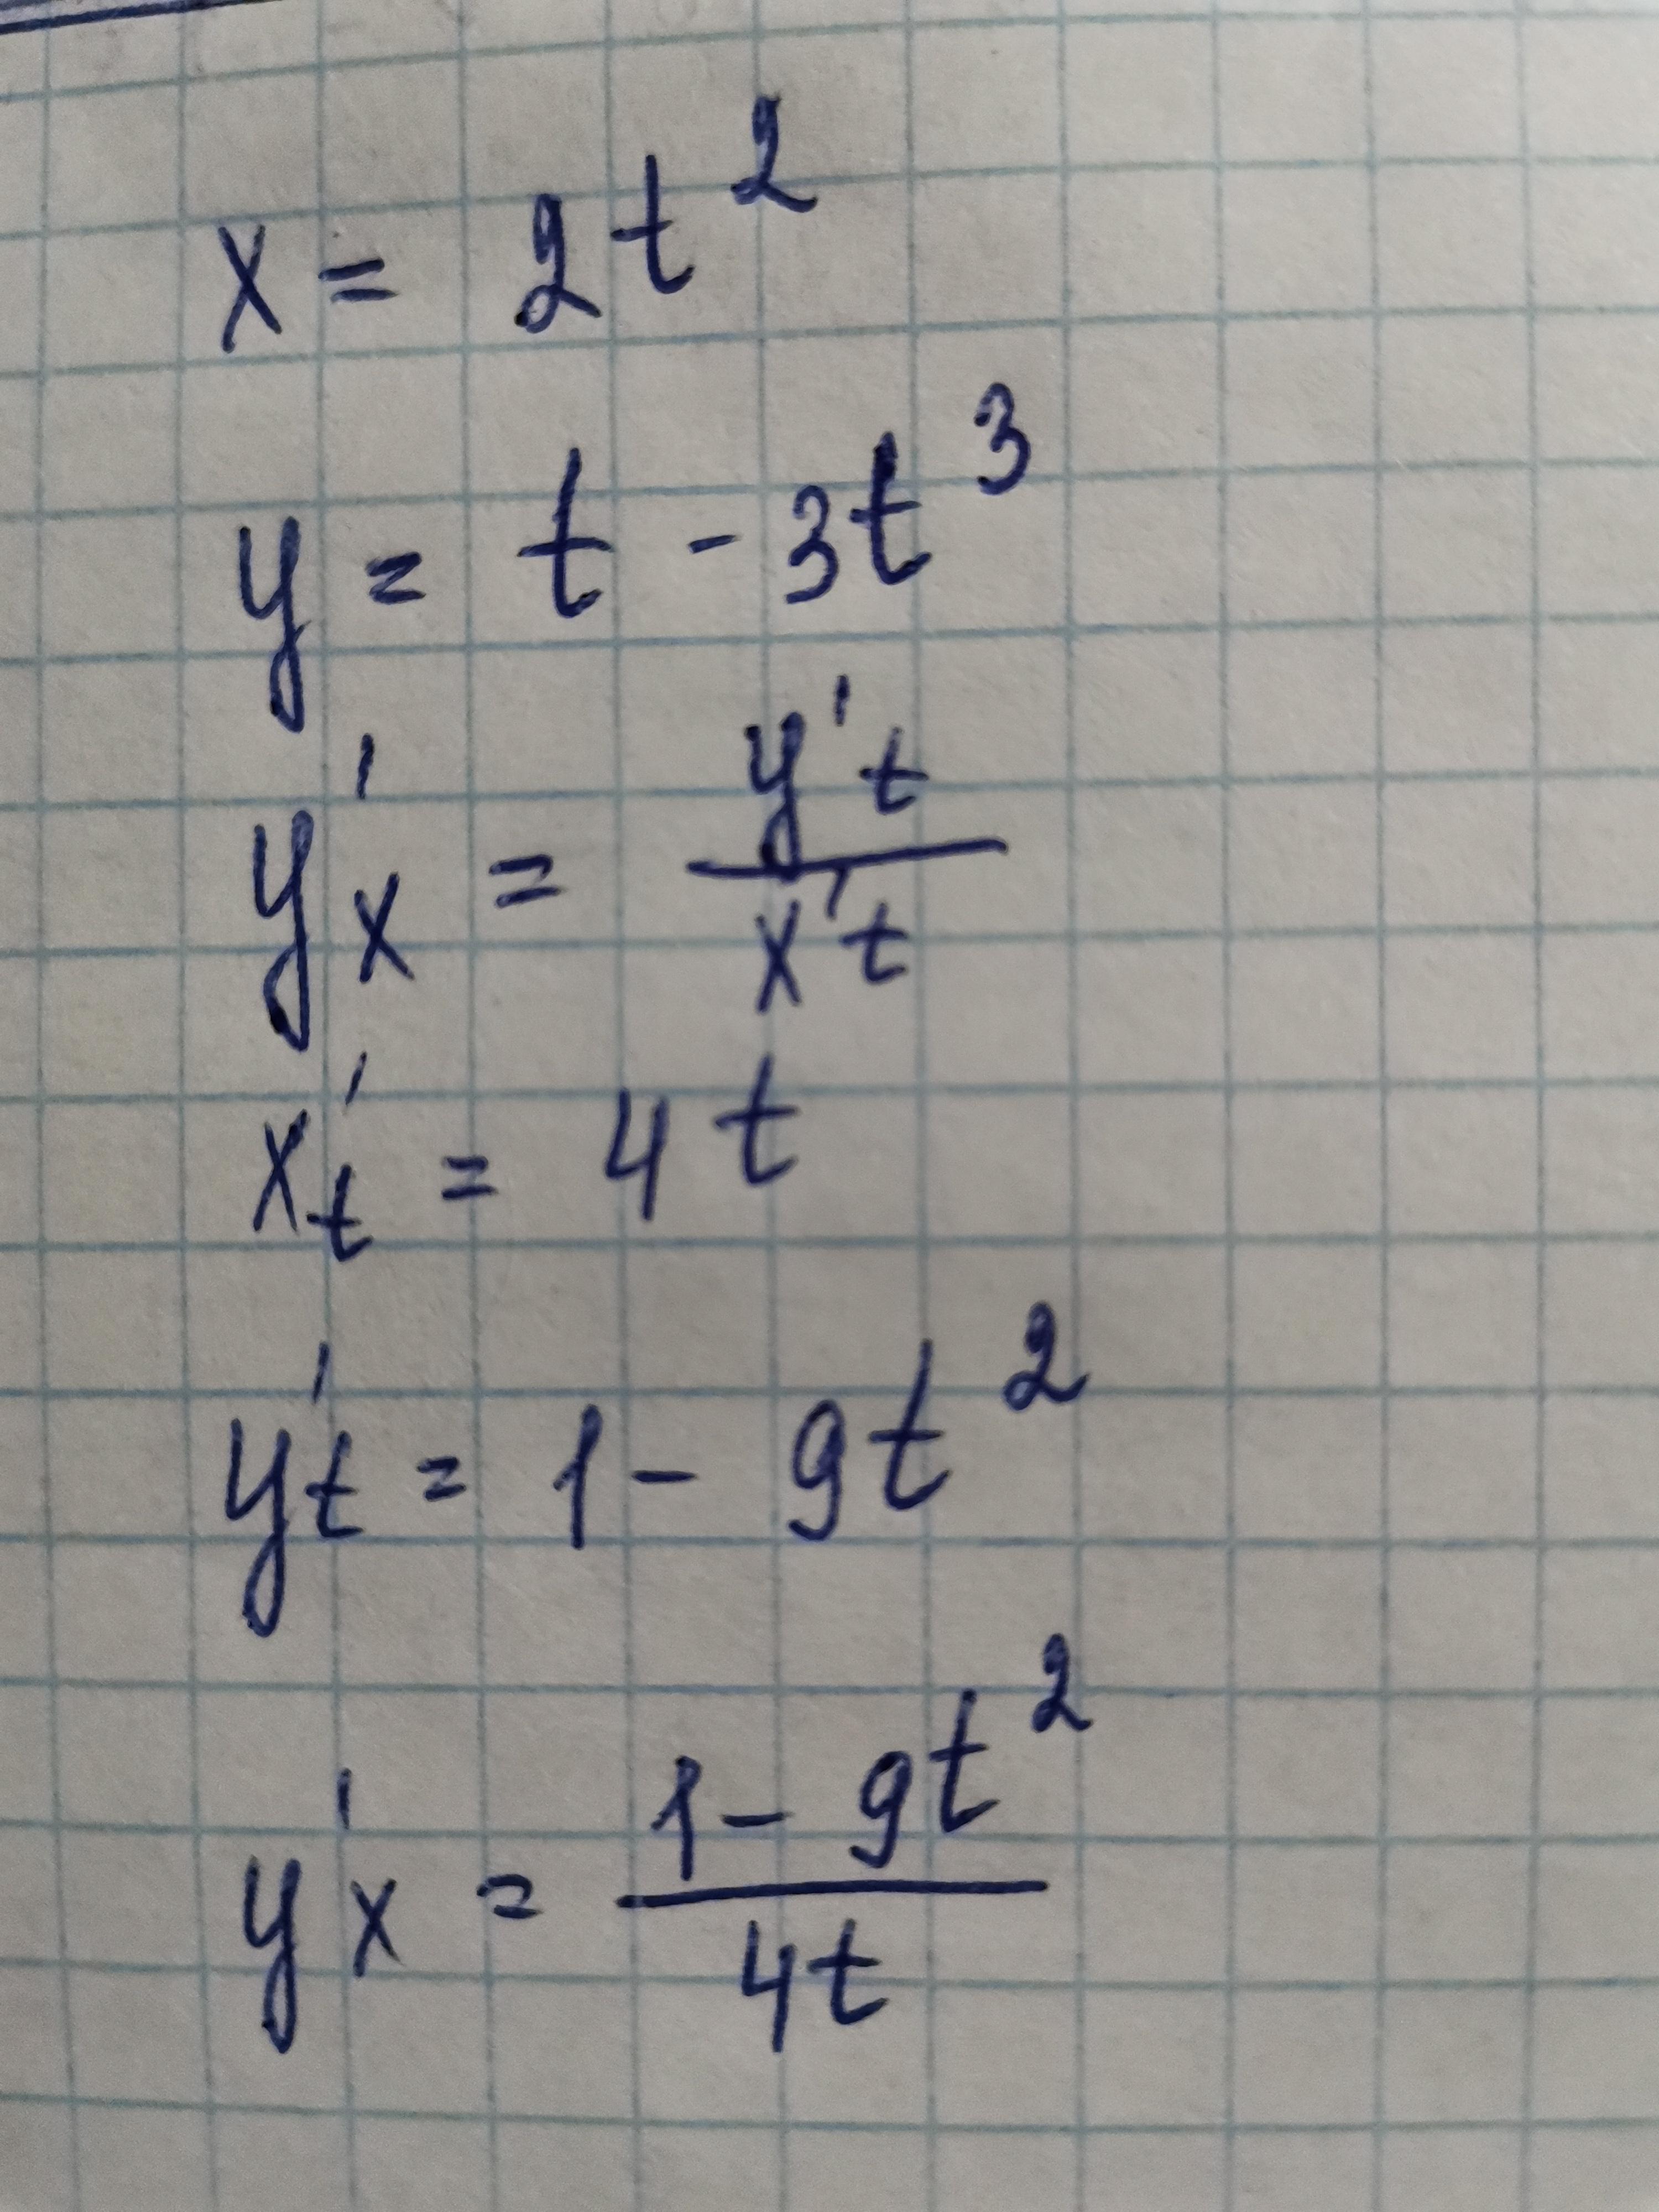 x = 2t²
y = t - 3t³
y'x = y't / x't
x't = 4t
y't = 1 - 9t²
y'x = 1 - 9t² / 4t